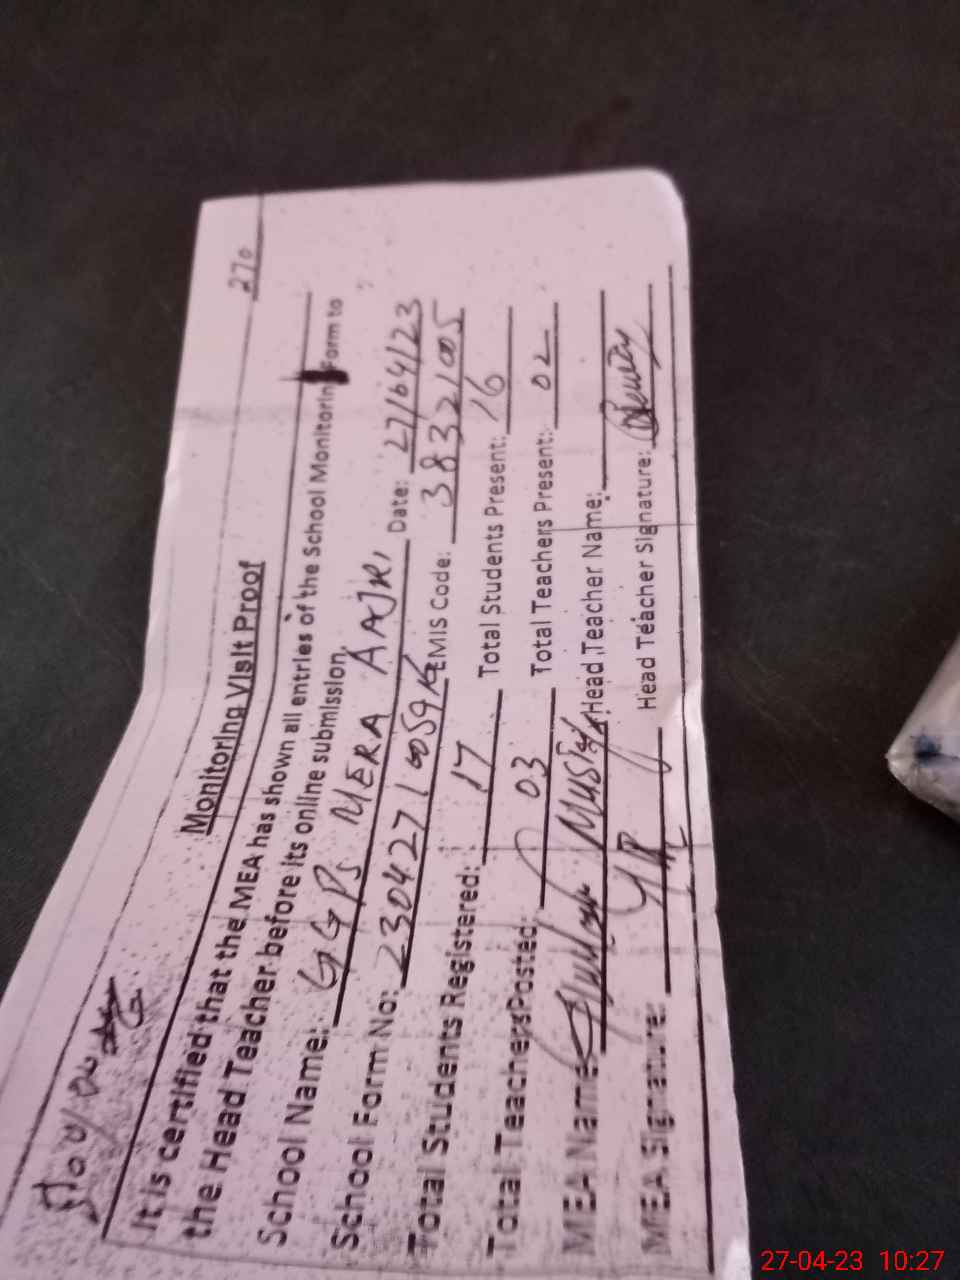 270
Monitoring Visit Proof
It is certified that the MEA has shown all entries of the School Monitoring Form to
the Head Teacher before its online submission.
School Name: GGPS MERA AAJRI Date: 27/04/23
School Form No: EMIS Code:
Total Students Registered: 17 Total Students Present: 16
Total TeachersPosted: 03 Total Teachers Present: 02
MEA Name: Head Teacher Name:
MEA Signature: Head Teacher Signature:
27-04-23 10:27